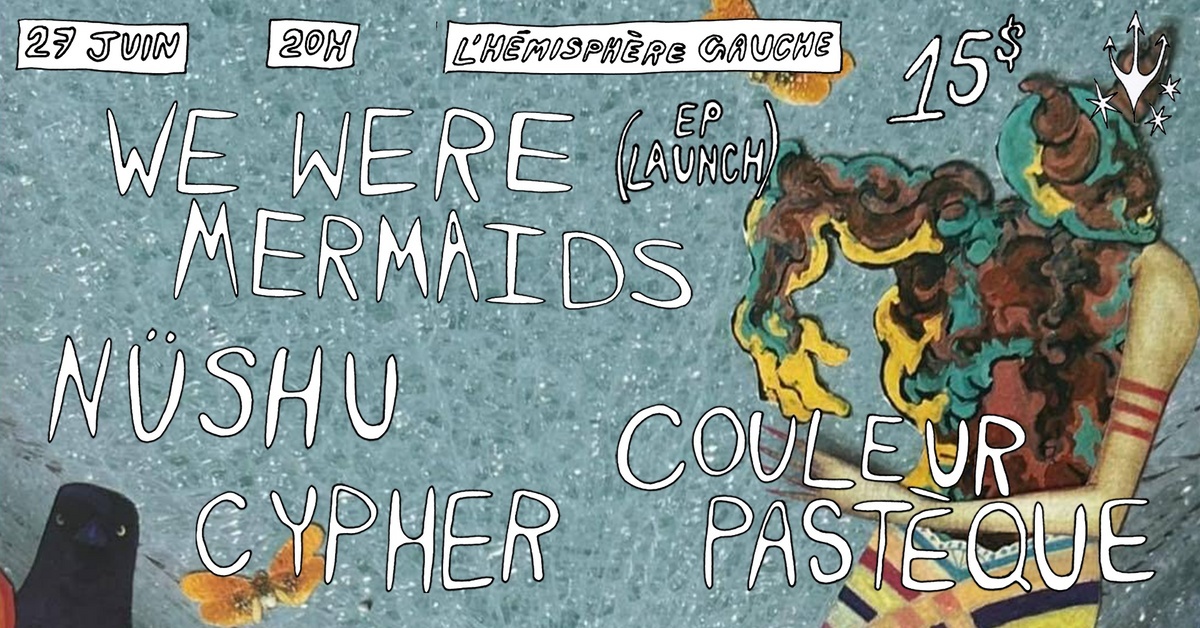 27 JUIN
20H
L'HÉMISPHÈRE GAUCHE
15$
WE WERE
(EP
LAUNCH)
MERMAIDS
NÜSHU
CYPHER
COULEUR
PASTÈQUE